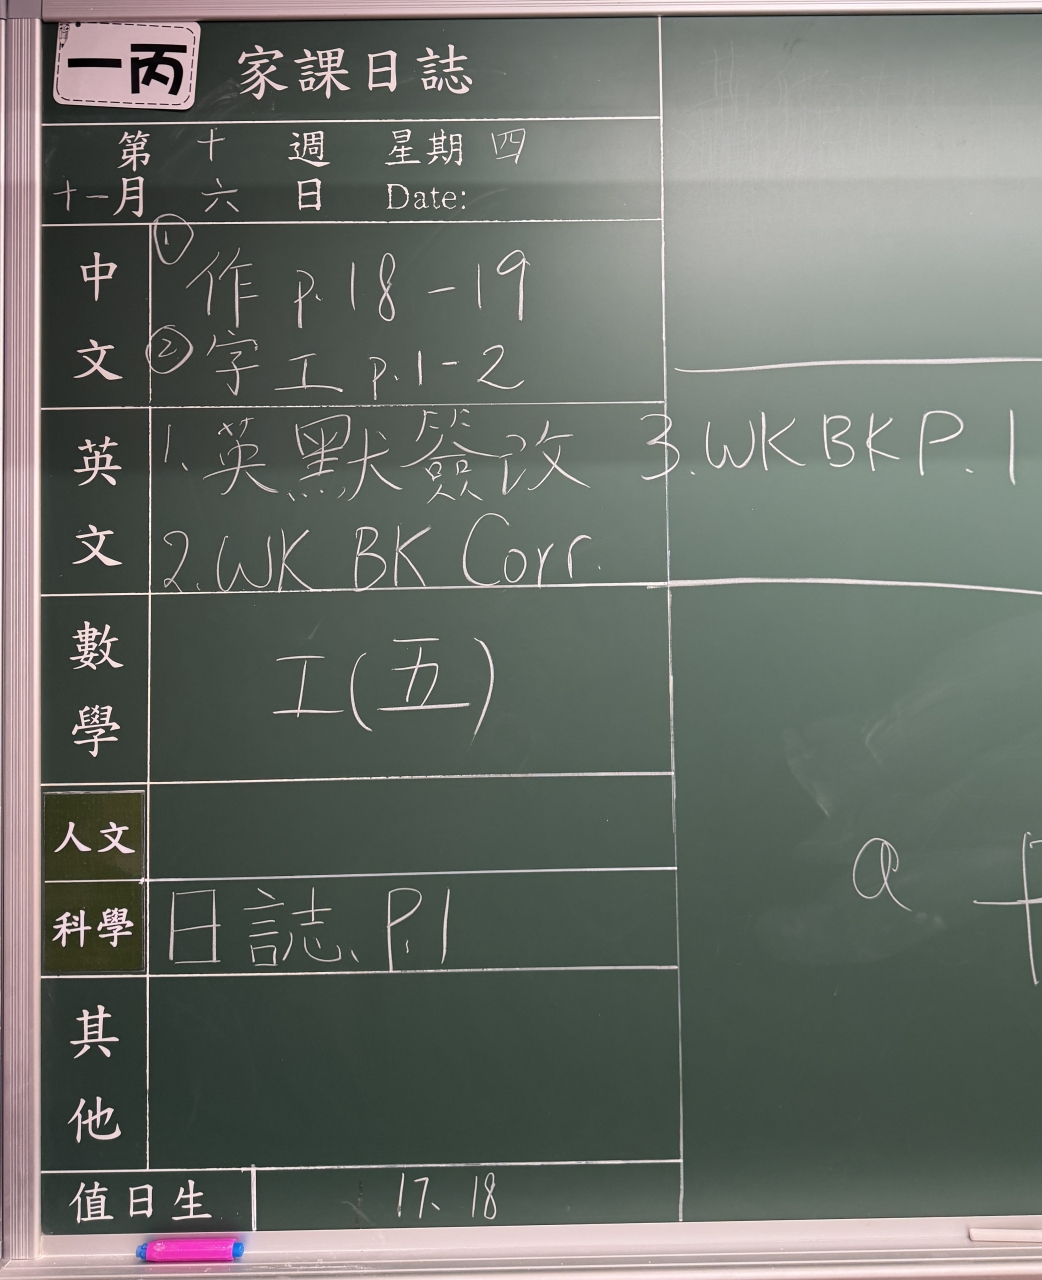 一丙 家課日誌
第 十 週 星期 四
十一月 六 日 Date:
中文
① 作 p.18-19
② 字工 p.1-2
英文
1. 英默簽改 3. WK BK P.1
2. WK BK Corr.
數學
工(五)
人文
科學
日誌、P.1
其他
值日生 17、18
a